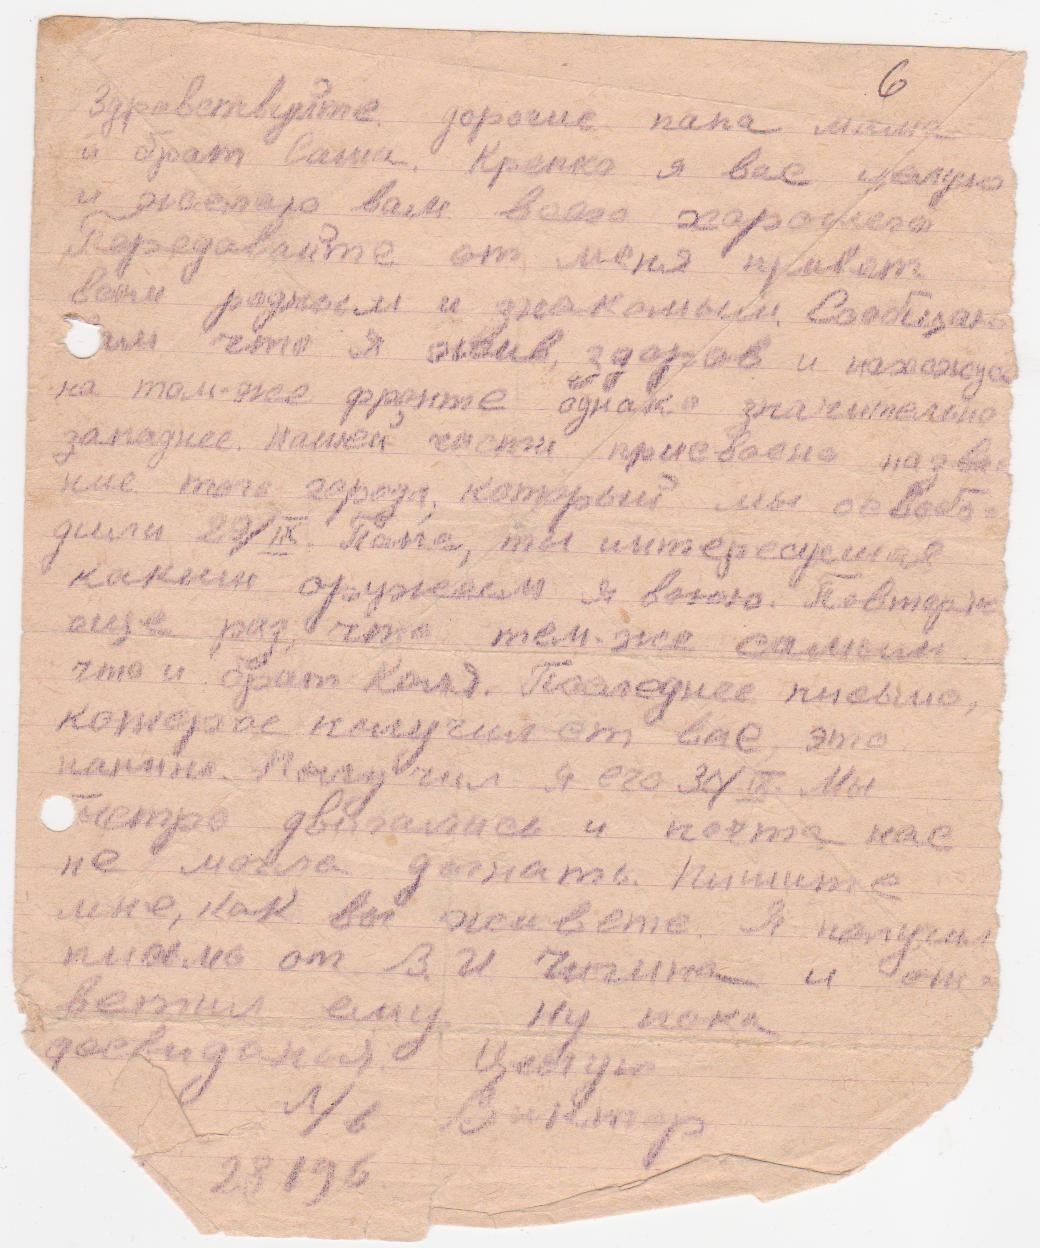 6
Здравствуйте дорогие папа мама
и брат Саша. Крепко я вас целую
и желаю вам всего хорошего
Передавайте от меня привет
всем родным и знакомым. Сообщаю
вам что я жив, здоров и нахожусь
на том-же фронте однако значительно
западнее. Нашей части присвоено назва-
ние того города, который мы освобо-
дили 29/IX. Папа, ты интересуешся
каким оружием я воюю. Повторяю
еще раз, что тем-же самым
что и брат Коля. Последнее письмо,
которое получил от вас, это
папино. Получил я его 30/IX. Мы
быстро двигались и почта нас
не могла догнать. Пишите
мне, как вы живете. Я получил
письмо от В. И Чигина и от-
ветил ему. Ну пока
досвиданья. Целую
Виктор
28196